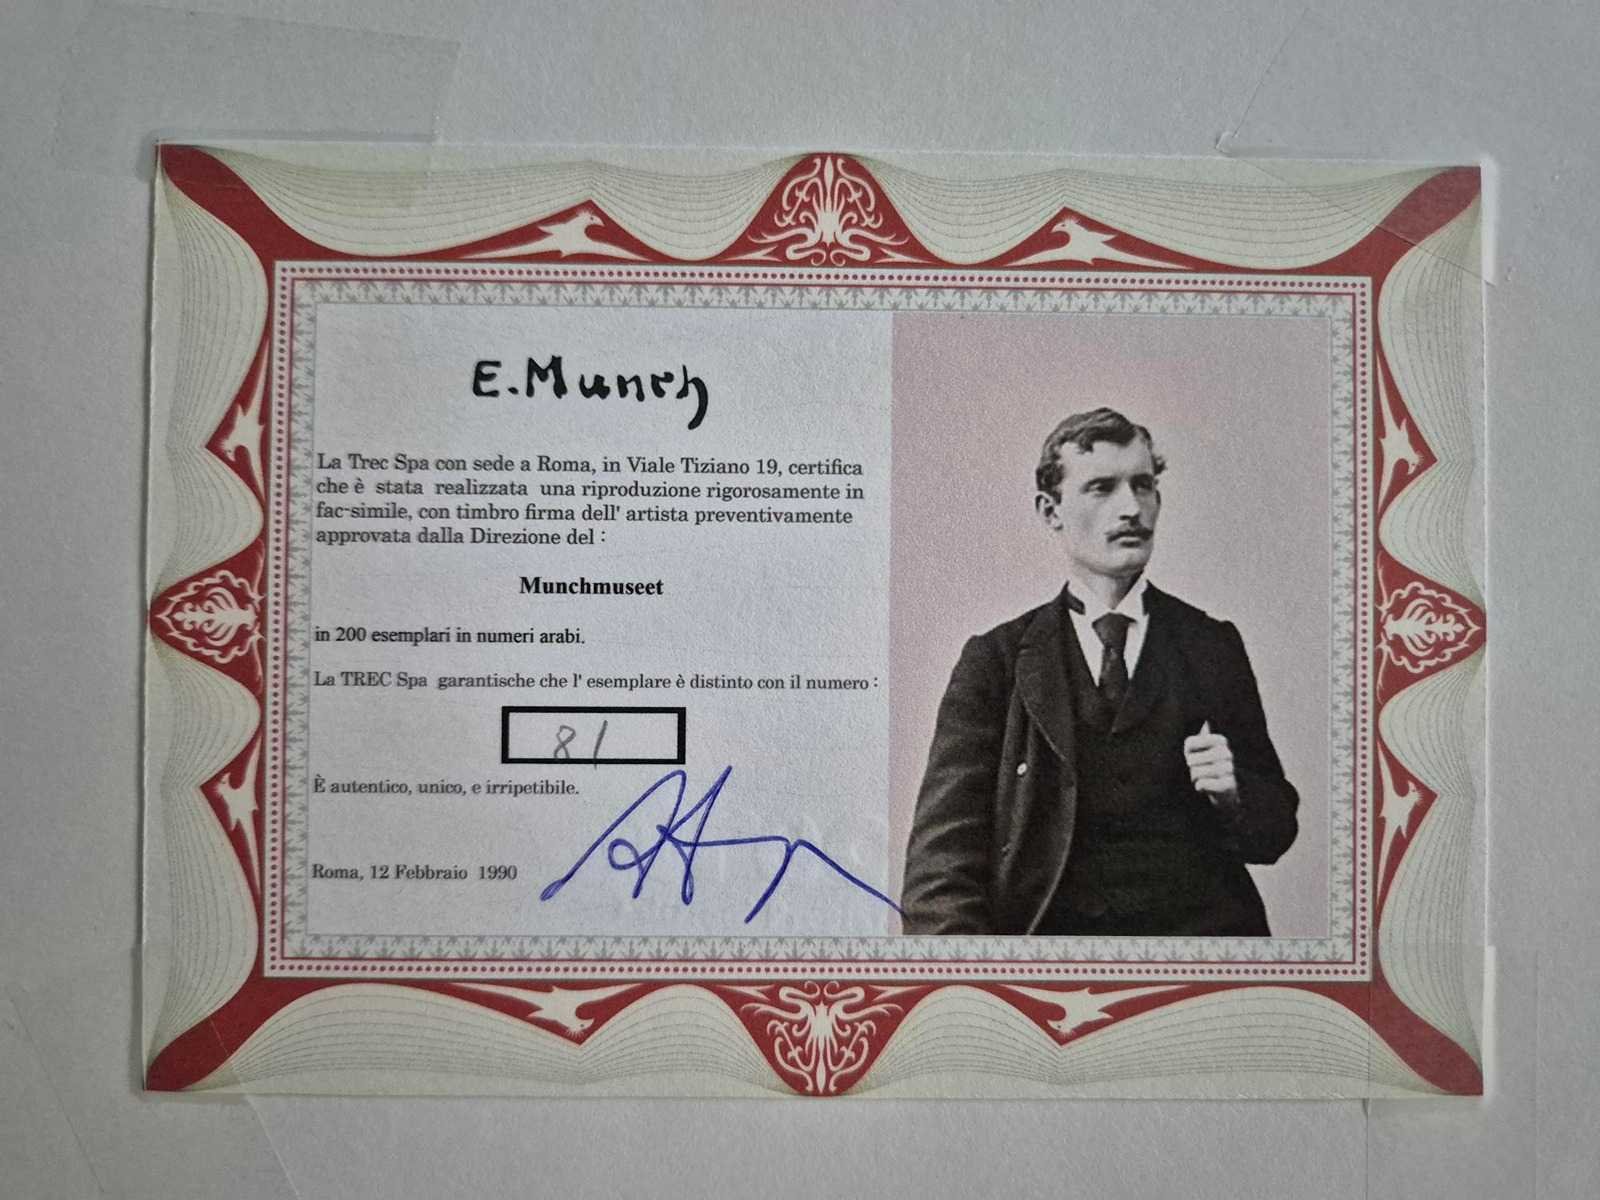 E. Munch
La Trec Spa con sede a Roma, in Viale Tiziano 19, certifica
che è stata realizzata una riproduzione rigorosamente in
fac-simile, con timbro firma dell' artista preventivamente
approvata dalla Direzione del :
Munchmuseet
in 200 esemplari in numeri arabi.
La TREC Spa garantische che l' esemplare è distinto con il numero :
81
È autentico, unico, e irripetibile.
Roma, 12 Febbraio 1990